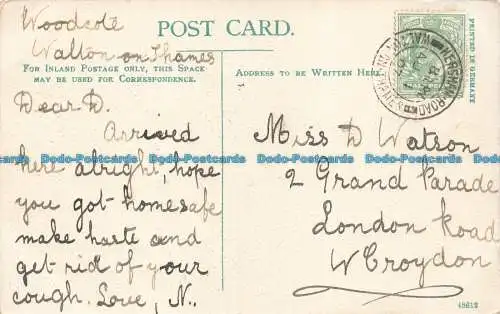 Woodcote
Walton on Thames
POST CARD.
FOR INLAND POSTAGE ONLY, THIS SPACE
MAY BE USED FOR CORRESPONDENCE.
ADDRESS TO BE WRITTEN HERE.
PRINTED IN GERMANY
HERSHAM ROAD WALTON ON THAMES
Dear D.
Arrived
here alright, hope
you got home safe
make haste and
get rid of your
cough. Love, N.
Miss D Watson
2 Grand Parade
London Road
W Croydon
Dodo-Postcards Dodo-Postcards Dodo-Postcards Dodo-Postcards Dodo-Postcards
48612